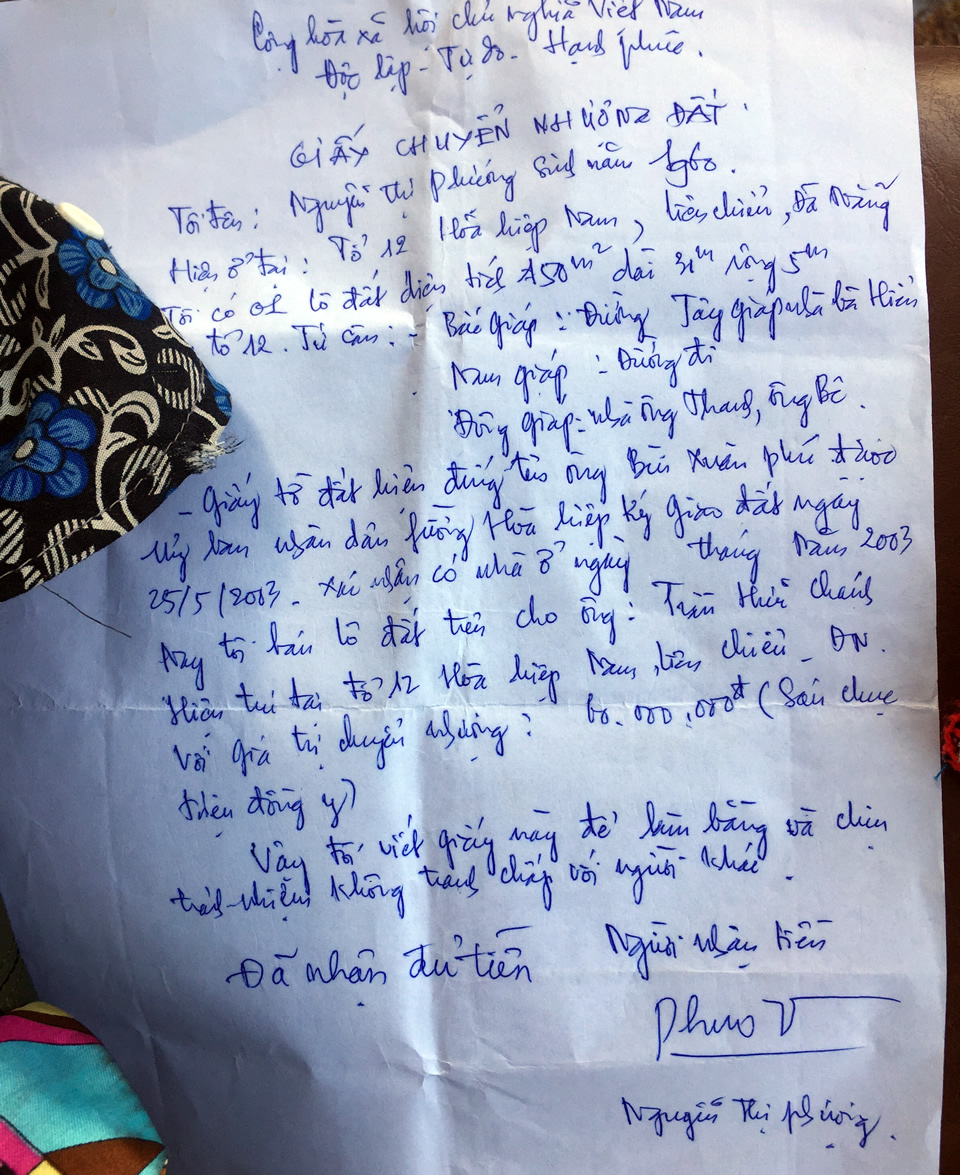 Cộng hòa xã hội chủ nghĩa Việt Nam
Độc lập - Tự do - Hạnh phúc.
GIẤY CHUYỂN NHƯỢNG ĐẤT.
Tôi tên: Nguyễn Thị Phượng Sinh năm 1960.
Hiện ở tại: Tổ 12 Hoà hiệp Nam, liên chiểu, Đà Nẵng
Tôi có 01 lô đất diện tích 150m² dài 31m rộng 5m
tổ 12. Tứ cận: - Bắc giáp: Đường Tây giáp nhà bà Hiền
Nam giáp - Đường đi
Đông giáp: nhà ông Thanh, ông Bê.
- Giấy tờ đất hiện đứng tên ông Bùi Xuân phú được
Uỷ ban nhân dân phường Hoà hiệp ký Giao đất ngày
25/5/2003 - xác nhận có nhà ở ngày tháng Năm 2003
Nay tôi bán lô đất trên cho ông: Trần Hữu Chánh
Hiện trú tại tổ 12 Hoà hiệp Nam, liên chiểu - ĐN.
Với giá trị chuyển nhượng: 60.000.000đ (Sáu chục
triệu đồng y)
Vậy tôi viết giấy này để làm bằng và chịu
trách nhiệm không tranh chấp với người khác.
Đã nhận đủ tiền Người nhận tiền
Nguyễn Thị Phượng.